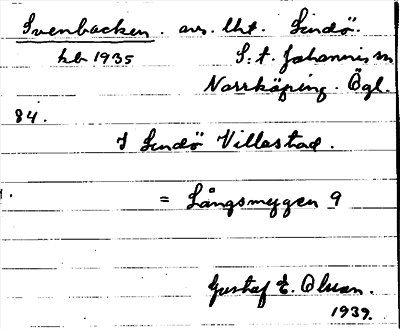 Svenbacken. avs. lht. Lindö.
hla 1935 S:t. Johannis sn
Norrköping. Ögl.
84.
I Lindö Villastad.
= Långsmygen 9
Gustaf E. Olsson.
1939.